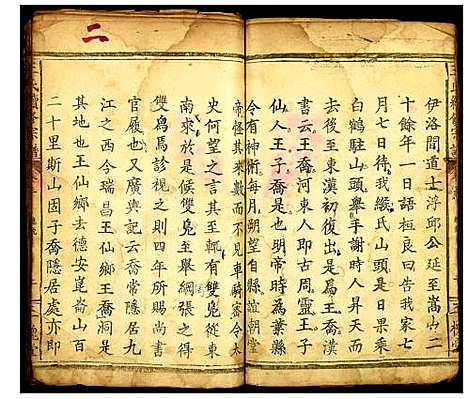 伊洛間道士浮邱公延至嵩山二
十餘年一日語桓良曰告我家七
月七日待我緱氏山頭是日果乘
白鶴駐山頭舉手謝時人昇天而
去後至東漢初復出為王喬漢
書云王喬河東人即古周靈王子
仙人王子喬是也明帝時為葉縣
令有神術每月朔望自縣詣朝堂
帝怪其來數而不見車騎密令太
史伺望之言其至有雙鳧從東
南來於是候雙鳧至舉網張之得
雙舄焉診視之則四年所賜尚書
官履也又廣輿記云喬常隱居九
江之西今瑞昌王仙鄉王喬洞是
其地也王仙鄉去德安崑崙山百
二十里斯山固子喬隱居處亦即
二
王氏續修宗譜